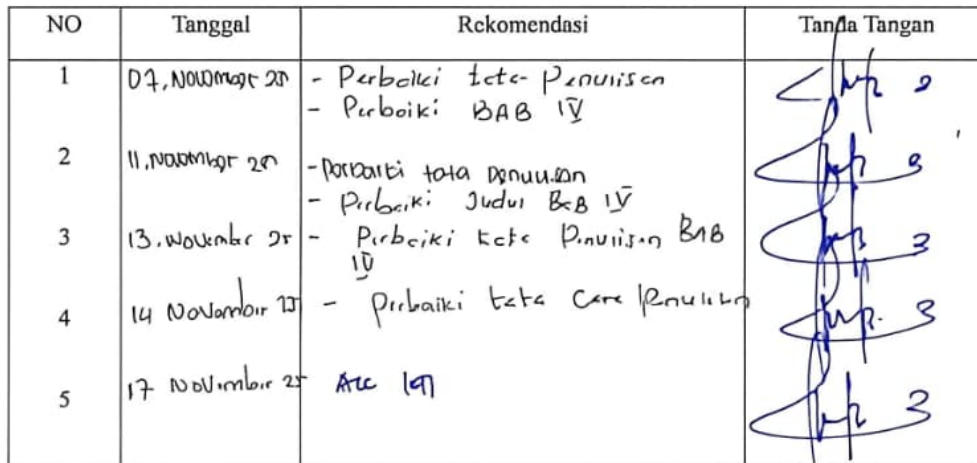 NO Tanggal Rekomendasi Tanda Tangan
1 07, November 25 - Perbaiki tata Penulisan
- Perbaiki BAB IV
2 11, November 25 - Perbaiki tata penulisan
- Perbaiki Judul BAB IV
3 13, November 25 - Perbaiki tata Penulisan BAB
IV
4 14 November 25 - Perbaiki tata Cara Penulisan
5 17 November 25 Acc